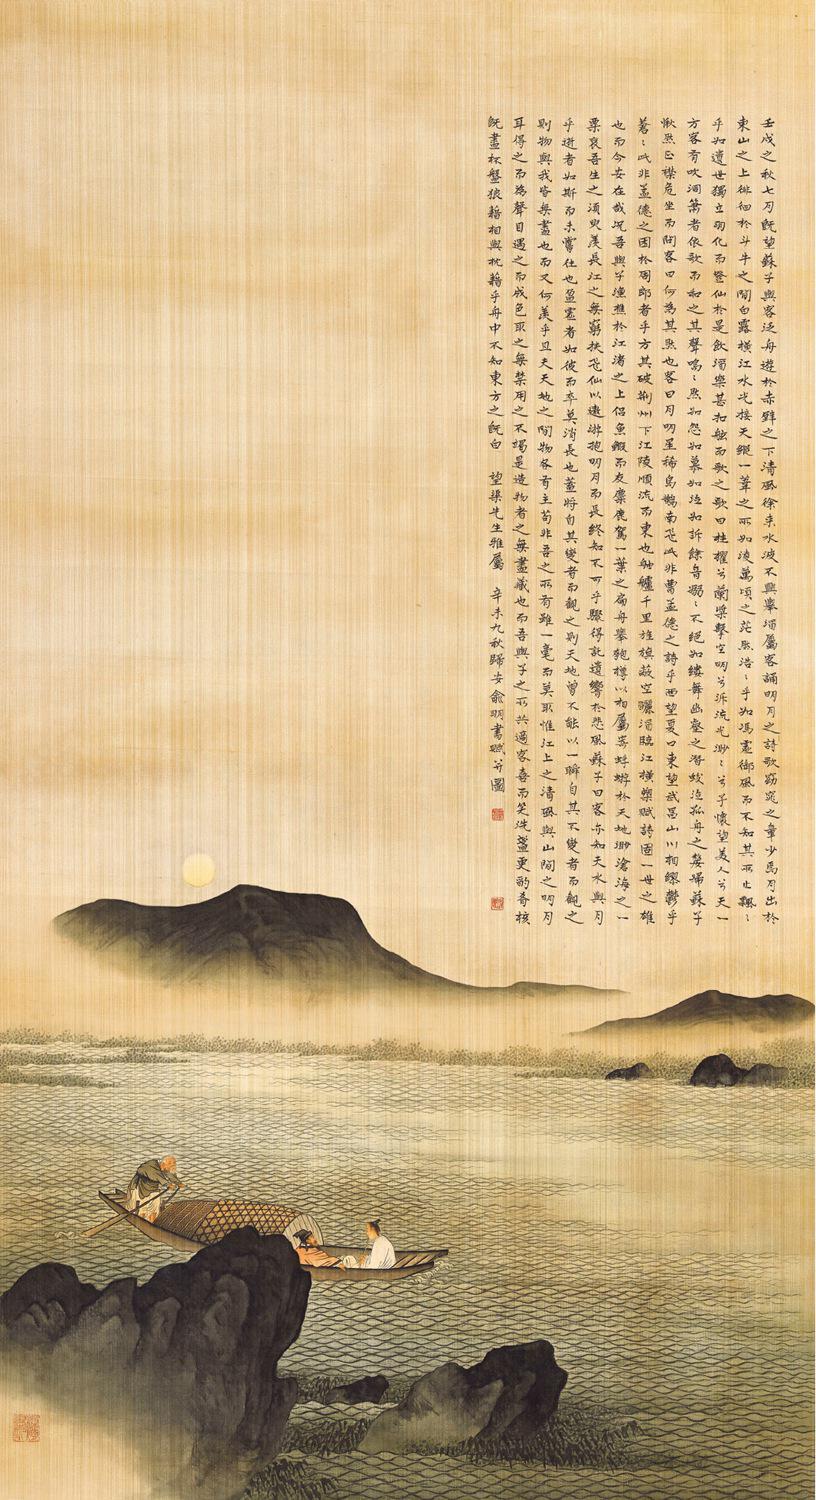 壬戌之秋七月既望蘇子與客泛舟遊於赤壁之下清風徐來水波不興舉酒屬客誦明月之詩歌窈窕之章少焉月出於
東山之上徘徊於斗牛之間白露橫江水光接天縱一葦之所如淩萬頃之茫然浩〻乎如馮虛御風而不知其所止飄〻
乎如遺世獨立羽化而登仙於是飲酒樂甚扣舷而歌之歌曰桂櫂兮蘭槳擊空明兮泝流光渺〻兮予懷望美人兮天一
方客有吹洞簫者依歌而和之其聲嗚〻然如怨如慕如泣如訴餘音嫋〻不絕如縷舞幽壑之潛蛟泣孤舟之嫠婦蘇子
愀然正襟危坐而問客曰何為其然也客曰月明星稀烏鵲南飛此非曹孟德之詩乎西望夏口東望武昌山川相繆鬱乎
蒼〻此非孟德之困於周郎者乎方其破荊州下江陵順流而東也舳艫千里旌旗蔽空釃酒臨江橫槊賦詩固一世之雄
也而今安在哉況吾與子漁樵於江渚之上侶魚鰕而友麋鹿駕一葉之扁舟舉匏樽以相屬寄蜉蝣於天地渺滄海之一
粟哀吾生之須臾羨長江之無窮挾飛仙以遨游抱明月而長終知不可乎驟得託遺響於悲風蘇子曰客亦知夫水與月
乎逝者如斯而未嘗往也盈虛者如彼而卒莫消長也蓋將自其變者而觀之則天地曾不能以一瞬自其不變者而觀之
則物與我皆無盡也而又何羨乎且夫天地之間物各有主苟非吾之所有雖一毫而莫取惟江上之清風與山間之明月
耳得之而為聲目遇之而成色取之無禁用之不竭是造物者之無盡藏也而吾與子之所共適客喜而笑洗盞更酌肴核
既盡杯盤狼藉相與枕藉乎舟中不知東方之既白 望渠先生雅屬 辛未九秋歸安俞明書賦并圖